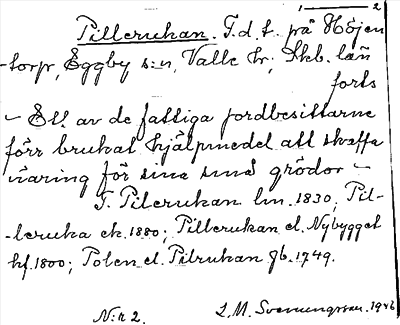 1 — 2
Pilleruhan. T.d.t. på Höjen-
-torp, Eggby s:n, Valle hr; Skb. län
forts
- Ett av de fattiga jordbesittarne
förr brukat hjälpmedel att skaffa
näring för sina små grödor -
T. Pileruhan lm. 1830; Pil-
-leruka ek. 1880; Pilleruhan el. Nybygget
hf. 1800; Polen el. Pilruhan gb. 1749.
N:r 2. L. M. Svenungsson. 1946